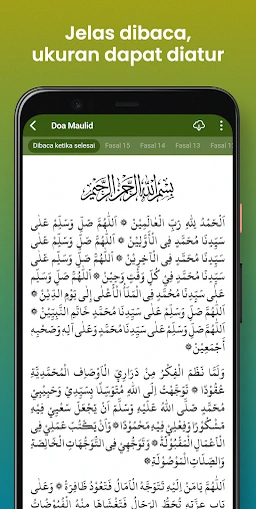 Jelas dibaca,
ukuran dapat diatur
Doa Maulid
Dibaca ketika selesai Fasal 15 Fasal 14 Fasal 13 Fasal 1
بِسْمِ اللهِ الرَّحْمٰنِ الرَّحِيْمِ
اَلْحَمْدُ لِلّٰهِ رَبِّ الْعَالَمِيْنَ ۞ اَللّٰهُمَّ صَلِّ وَسَلِّمْ عَلَى
سَيِّدِنَا مُحَمَّدٍ فِى الْأَوَّلِيْنَ ۞ اَللّٰهُمَّ صَلِّ وَسَلِّمْ عَلَى
سَيِّدِنَا مُحَمَّدٍ فِى الْآخِرِيْنَ ۞ اَللّٰهُمَّ صَلِّ وَسَلِّمْ عَلَى
سَيِّدِنَا مُحَمَّدٍ فِيْ كُلِّ وَقْتٍ وَحِيْنٍ ۞ اَللّٰهُمَّ صَلِّ وَسَلِّمْ
عَلَى سَيِّدِنَا مُحَمَّدٍ فِى الْمَلَأِ الْأَعْلَى إِلَى يَوْمِ الدِّيْنِ ۞
اَللّٰهُمَّ صَلِّ وَسَلِّمْ عَلَى سَيِّدِنَا مُحَمَّدٍ خَاتَمِ النَّبِيِّيْنَ ۞
اَللّٰهُمَّ صَلِّ وَسَلِّمْ عَلَى سَيِّدِنَا مُحَمَّدٍ وَعَلَى آلِهِ وَصَحْبِهِ
أَجْمَعِيْنَ ۞
وَلَمَّا نَظَمَ الْفِكْرُ مِنْ دَرَارِيِّ الْأَوْصَافِ الْمُحَمَّدِيَّةِ
عُقُوْدًا ۞ تَوَجَّهْتُ إِلَى اللهِ مُتَوَسِّلًا بِسَيِّدِيْ وَحَبِيْبِيْ
مُحَمَّدٍ صَلَّى اللهُ عَلَيْهِ وَسَلَّمَ أَنْ يَجْعَلَ سَعْيِيْ فِيْهِ
مَشْكُوْرًا وَفِعْلِيْ فِيْهِ مَحْمُوْدًا ۞ وَأَنْ يَكْتُبَ عَمَلِيْ فِى
الْأَعْمَالِ الْمَقْبُوْلَةِ ۞ وَتَوَجُّهِيْ فِى التَّوَجُّهَاتِ الْخَالِصَةِ
وَالصِّلَاتِ الْمَوْصُوْلَةِ ۞
اَللّٰهُمَّ يَامَنْ إِلَيْهِ تَتَوَجَّهُ الْآمَالُ فَتَعُوْدُ ظَافِرَةً ۞ وَعَلَى
بَابِ عِزَّتِهِ تُحَطُّ الرِّحَالُ فَتَغْشَاهَا مِنْهُ الْفُيُوْضَاتُ